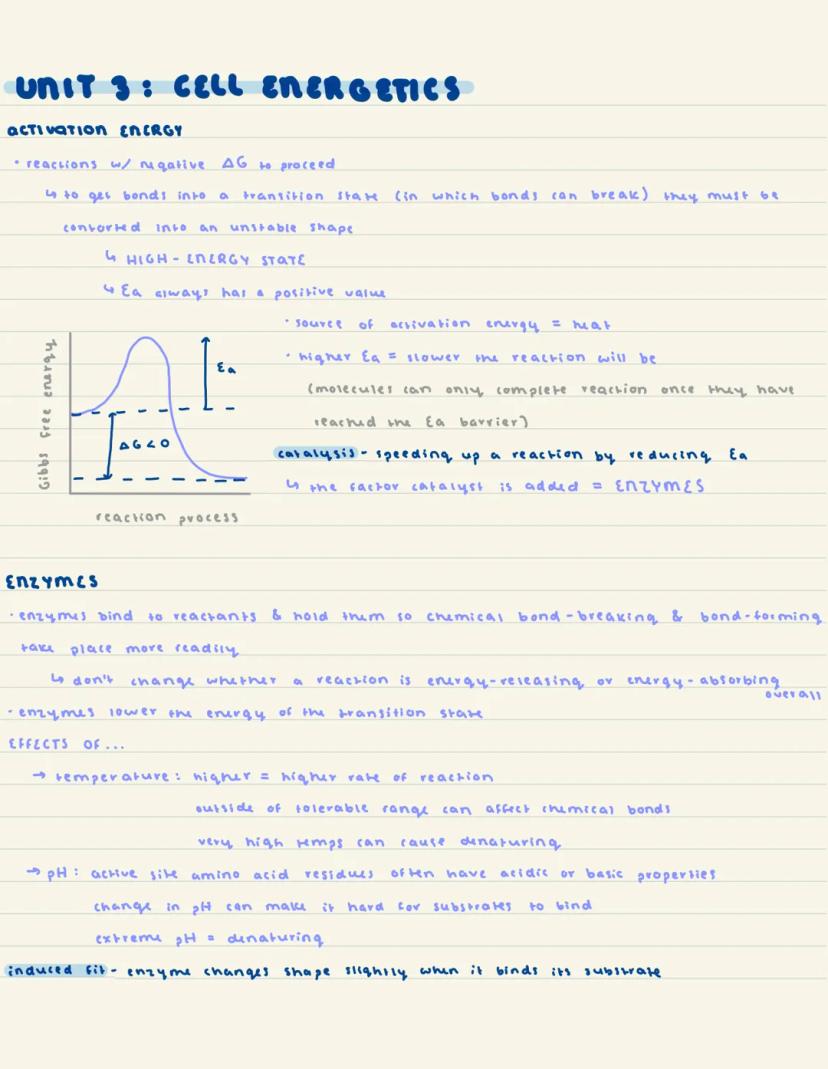 UNIT 3: CELL ENERGETICS
ACTIVATION ENERGY
• reactions w/ negative ΔG to proceed
↳ to get bonds into a transition state (in which bonds can break) they must be
contorted into an unstable shape
↳ HIGH-ENERGY STATE
↳ Ea always has a positive value
• source of activation energy = heat
• higher Ea = slower the reaction will be
(molecules can only complete reaction once they have
reached the Ea barrier)
catalysis - speeding up a reaction by reducing Ea
↳ the factor catalyst is added = ENZYMES
Gibbs free energy
Ea
ΔG<0
reaction process
ENZYMES
• enzymes bind to reactants & hold them so chemical bond-breaking & bond-forming
take place more readily
↳ don't change whether a reaction is energy-releasing or energy-absorbing
overall
• enzymes lower the energy of the transition state
EFFECTS OF...
→ temperature: higher = higher rate of reaction
outside of tolerable range can affect chemical bonds
very high temps can cause denaturing
→ pH: active site amino acid residues often have acidic or basic properties
change in pH can make it hard for substrates to bind
extreme pH = denaturing
induced fit - enzyme changes shape slightly when it binds its substrate